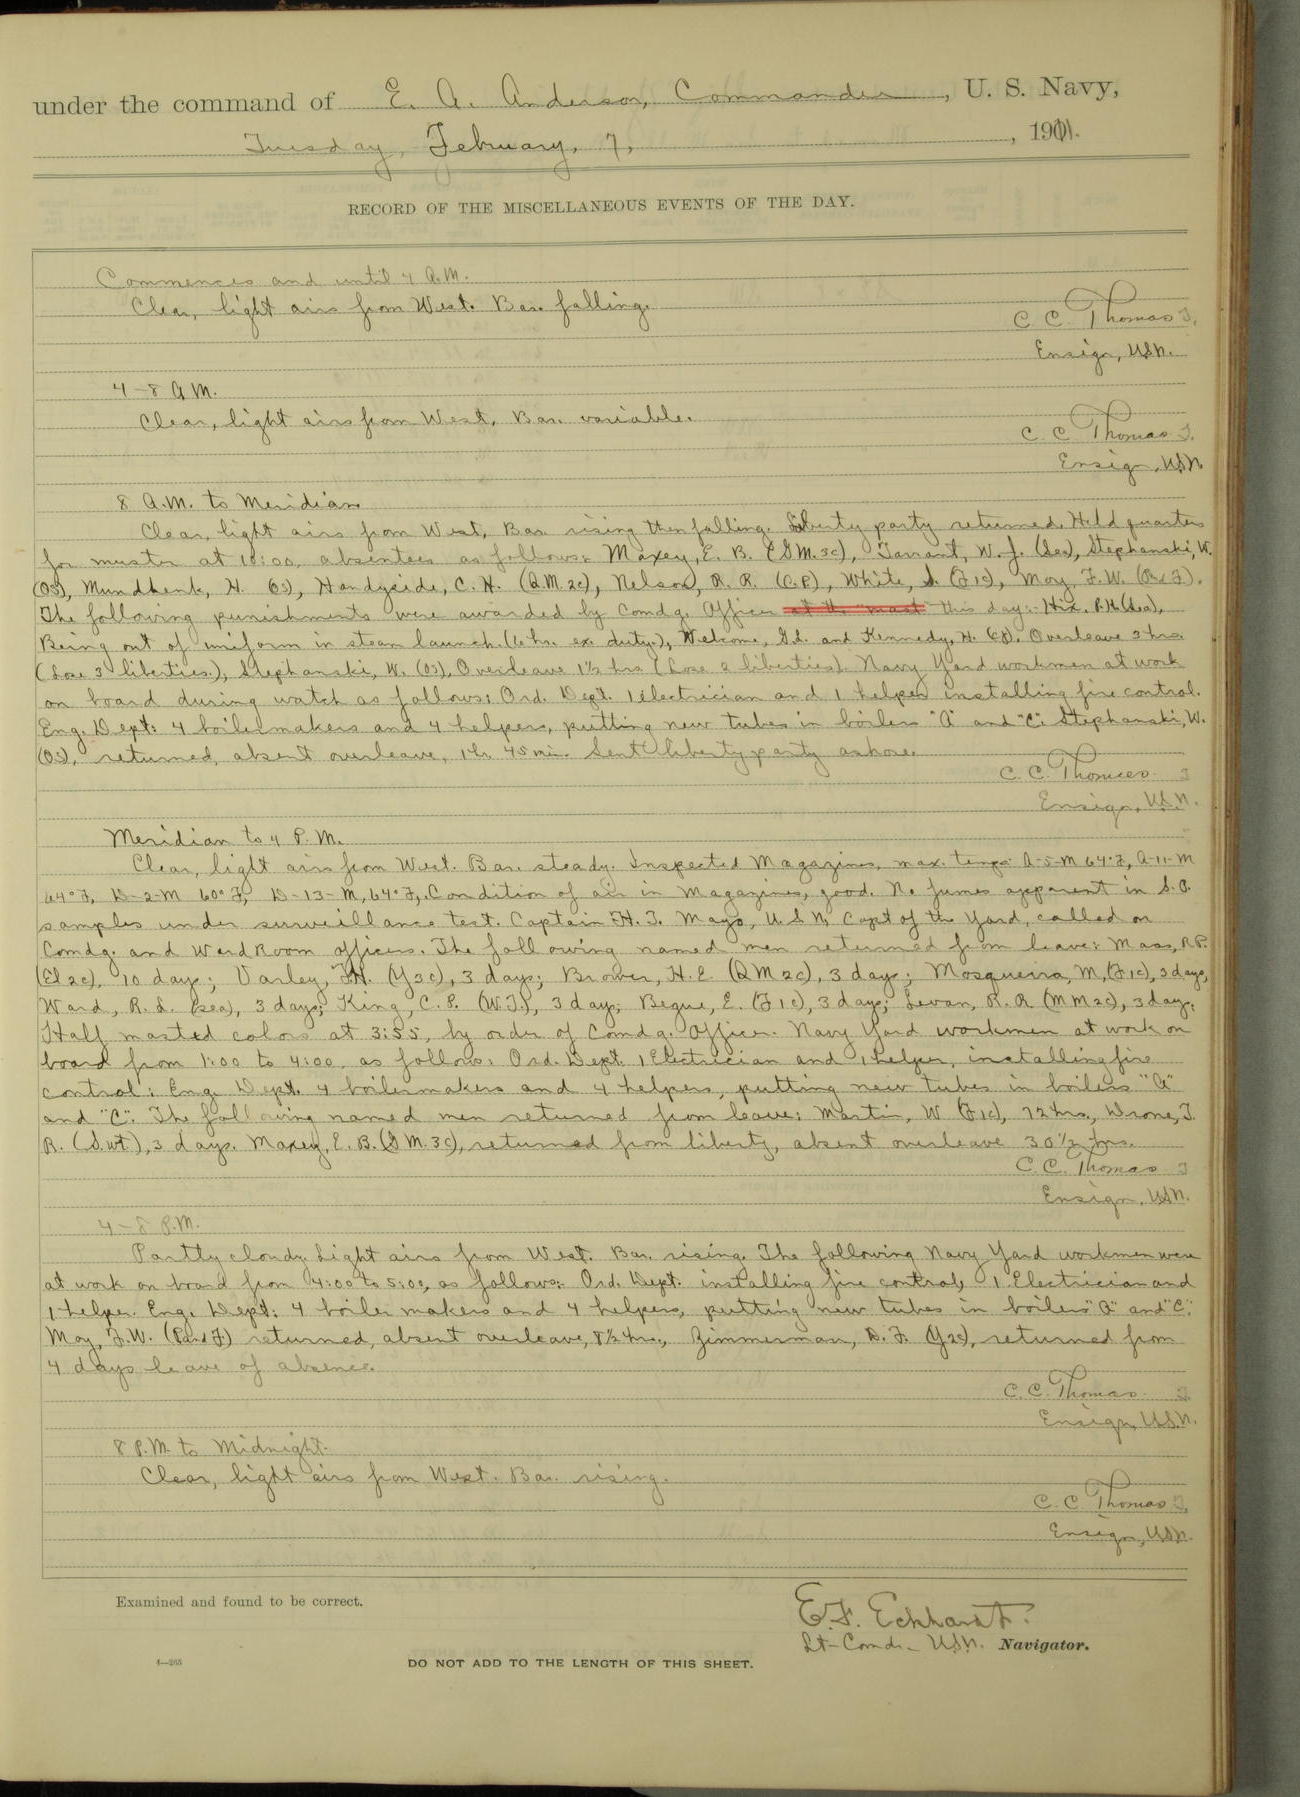 under the command of E. A. Anderson, Commander, U. S. Navy,
Tuesday, February, 7, 1911.
RECORD OF THE MISCELLANEOUS EVENTS OF THE DAY.
Commences and until 4 A.M.
Clear, light airs from West. Bar. falling.
C. C. Thomas
Ensign, U.S.N.
4-8 A.M.
Clear, light airs from West, Bar. variable.
C. C. Thomas
Ensign, U.S.N.
8 A.M. to Meridian
Clear, light airs from West, Bar. rising then falling. Liberty party returned. Held quarters
for muster at 10:00, absentees as follows: Maxey, E. B. (G.M.3c), Tarrant, W. J. (Sea), Stephanski, W.
(OS), Mundhenk, H. (OS), Handyside, C. H. (Q.M.2c), Nelson, R. R. (C.P.), White, S. (F1c), Moy, F.W. (P and F).
The following punishments were awarded by Comdg. Officer at the "mast" this day: Hix, P.H. (Sea),
Being out of uniform in steam launch. (6 hrs. ex. duty.), Welcome, G.L. and Kennedy, H. Overleave 3 hrs.
(Lose 3 liberties.), Stephanski, W. (OS), Overleave 1½ hrs (Lose 2 liberties). Navy Yard workmen at work
on board during watch as follows: Ord. Dept. 1 electrician and 1 helper installing fire control.
Eng. Dept: 4 boilermakers and 4 helpers, putting new tubes in boilers "A" and "C". Stephanski, W.
(OS), returned, absent overleave, 1 hr. 45 min. Sent liberty party ashore.
C. C. Thomas
Ensign, U.S.N.
Meridian to 4 P.M.
Clear, light airs from West. Bar. steady. Inspected Magazines, max. temps. A-5-M 64°F, A-11-M
64°F, D-2-M 60°F, D-13-M, 64°F, Condition of air in Magazines, good. No fumes apparent in S.P.
samples under surveillance test. Captain H. T. Mayo, U.S.N. Capt of the Yard, called on
Comdg. and WardRoom officers. The following named men returned from leave: Mass, R.P.
(El 2c), 10 days; Varley, F.H. (Y3c), 3 days; Brower, H. E. (QM2c), 3 days; Mosqueira, M, (F1c), 3 days,
Ward, R. L. (sea), 3 days; King, C. P. (W.T.), 3 days; Begue, E. (F1c), 3 days; Levan, R. R (MM2c), 3 days;
Half masted colors at 3:55, by order of Comdg. Officer. Navy Yard workmen at work on
board from 1:00 to 4:00, as follows: Ord. Dept. 1 Electrician and 1 helper, installing fire
control; Eng. Dept. 4 boilermakers and 4 helpers, putting new tubes in boilers "A"
and "C". The following named men returned from leave: Martin, W (F1c), 72 hrs., Wrone, T.
R. (S.wt.), 3 days. Maxey, E. B. (G.M.3c), returned from liberty, absent overleave 30½ hrs.
C. C. Thomas
Ensign, U.S.N.
4-8 P.M.
Partly cloudy. Light airs from West. Bar. rising. The following Navy Yard workmen were
at work on board from 4:00 to 5:00, as follows: Ord. Dept. installing fire control, 1 Electrician and
1 helper. Eng. Dept: 4 boiler makers and 4 helpers, putting new tubes in boilers "A" and "C".
Moy, F.W. (P and F) returned, absent overleave, 8½ hrs., Zimmerman, D. F. (Y2c), returned from
4 days leave of absence.
C. C. Thomas
Ensign, U.S.N.
8 P.M. to Midnight.
Clear, light airs from West. Bar. rising.
C. C. Thomas
Ensign, U.S.N.
Examined and found to be correct.
E. F. Eckhardt
Lt-Comdr. U.S.N. Navigator.
4-265
DO NOT ADD TO THE LENGTH OF THIS SHEET.